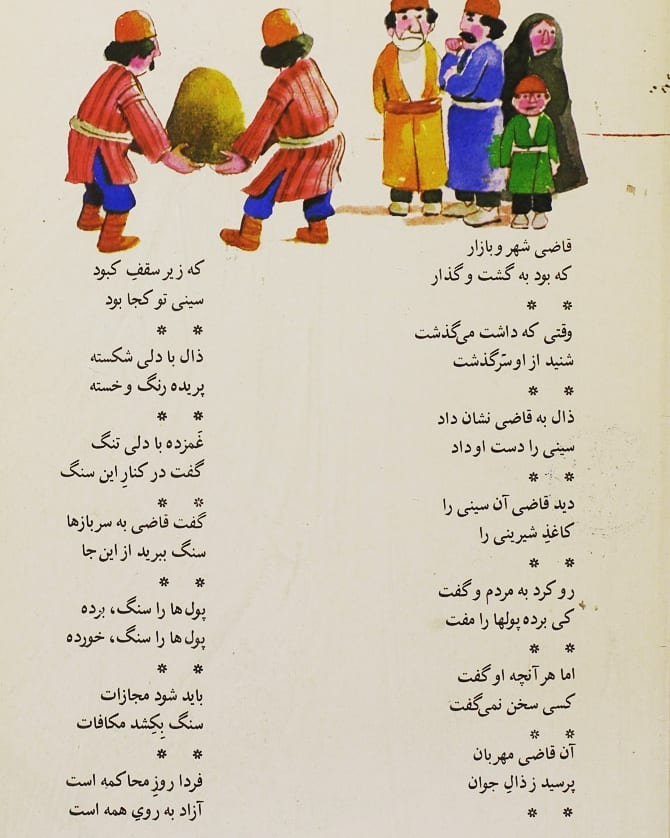 قاضی شهر و بازار
که بود به گشت و گذار
* *
وقتی که داشت می‌گذشت
شنید از او سَرگذشت
* *
ذال به قاضی نشان داد
سینی را دست او داد
* *
دید قاضی آن سینی را
کاغذِ شیرینی را
* *
رو کرد به مردم و گفت
کی برده پولها را مفت
* *
اما هر آنچه او گفت
کسی سخن نمی‌گفت
* *
آن قاضی مهربان
پرسید ز ذالِ جوان
* *
که زیر سقفِ کبود
سینی تو کجا بود
* *
ذال با دلی شکسته
پریده رنگ و خسته
* *
غَمزده با دلی تنگ
گفت در کنارِ این سنگ
* *
گفت قاضی به سربازها
سنگ ببرید از این جا
* *
پول‌ها را سنگ، برده
پول‌ها را سنگ، خورده
* *
باید شود مجازات
سنگ بِکِشد مکافات
* *
فردا روزِ محاکمه است
آزاد به رویِ همه است